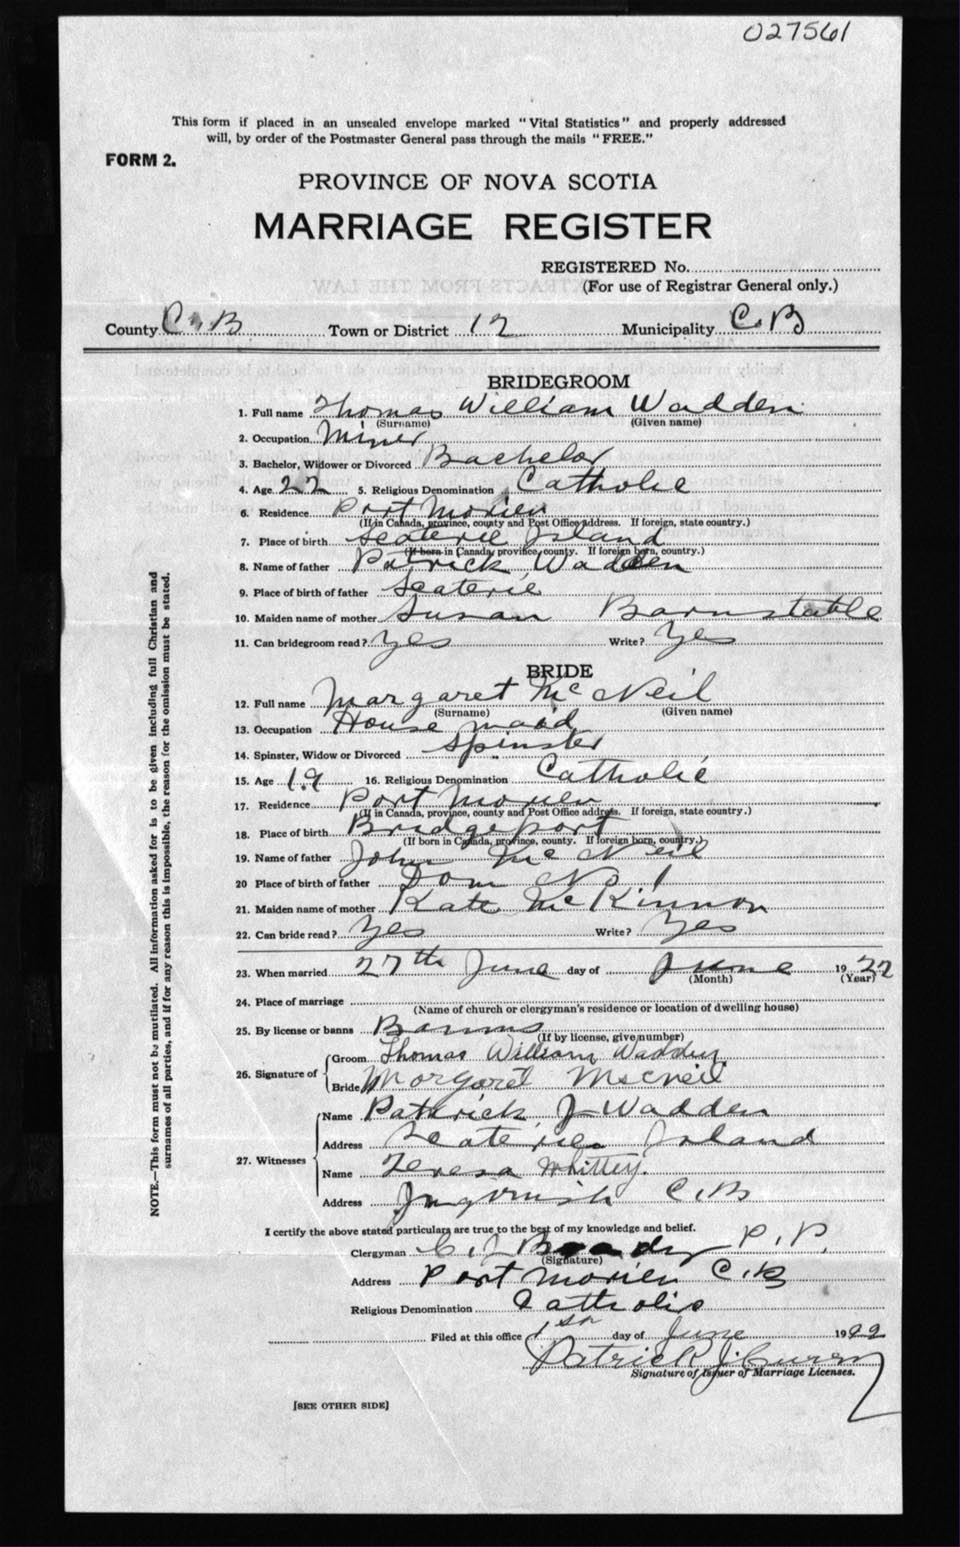 027561
This form if placed in an unsealed envelope marked "Vital Statistics" and properly addressed
will, by order of the Postmaster General pass through the mails "FREE."
FORM 2.
PROVINCE OF NOVA SCOTIA
MARRIAGE REGISTER
REGISTERED No.
(For use of Registrar General only.)
County C.B Town or District 12 Municipality C.B
BRIDEGROOM
1. Full name Thomas William Wadden
(Surname) (Given name)
2. Occupation Miner
3. Bachelor, Widower or Divorced Bachelor
4. Age 22 5. Religious Denomination Catholic
6. Residence Port Morien
(If in Canada, province, county and Post Office address. If foreign, state country.)
7. Place of birth Scaterie Island
(If born in Canada, province, county. If foreign born, country.)
8. Name of father Patrick Wadden
9. Place of birth of father Scaterie
10. Maiden name of mother Susan Barnstable
11. Can bridegroom read? Yes Write? Yes
BRIDE
12. Full name Margaret McNeil
(Surname) (Given name)
13. Occupation House maid
14. Spinster, Widow or Divorced Spinster
15. Age 19 16. Religious Denomination Catholic
17. Residence Port Morien
(If in Canada, province, county and Post Office address. If foreign, state country.)
18. Place of birth Bridgeport
(If born in Canada, province, county. If foreign born, country.)
19. Name of father John McNeil
20 Place of birth of father
21. Maiden name of mother Kate McKinnon
22. Can bride read? Yes Write? Yes
23. When married 27th June day of June 1922
(Month) (Year)
24. Place of marriage
(Name of church or clergyman's residence or location of dwelling house)
25. By license or banns Banns
(If by license, give number)
26. Signature of Groom Thomas William Wadden
Bride Margaret Mcneil
27. Witnesses Name Patrick J Wadden
Address Scaterie Island
Name Teresa Whitty.
Address Ingonish C.B
I certify the above stated particulars are true to the best of my knowledge and belief.
Clergyman C. J. P.P.
(Signature)
Address Port Morien C.B
Religious Denomination Catholic
Filed at this office 1st day of June 1922
Patrick J. Curry
Signature of Issuer of Marriage Licenses.
[SEE OTHER SIDE]
NOTE.—This form must not be mutilated. All information asked for is to be given including full Christian and
surnames of all parties, and if for any reason this is impossible, the reason for the omission must be stated.